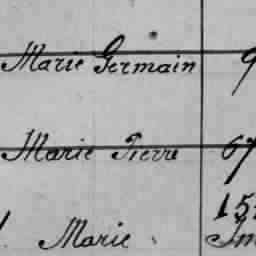 Marie Germain 9
Marie Pierre 67
15
Marie